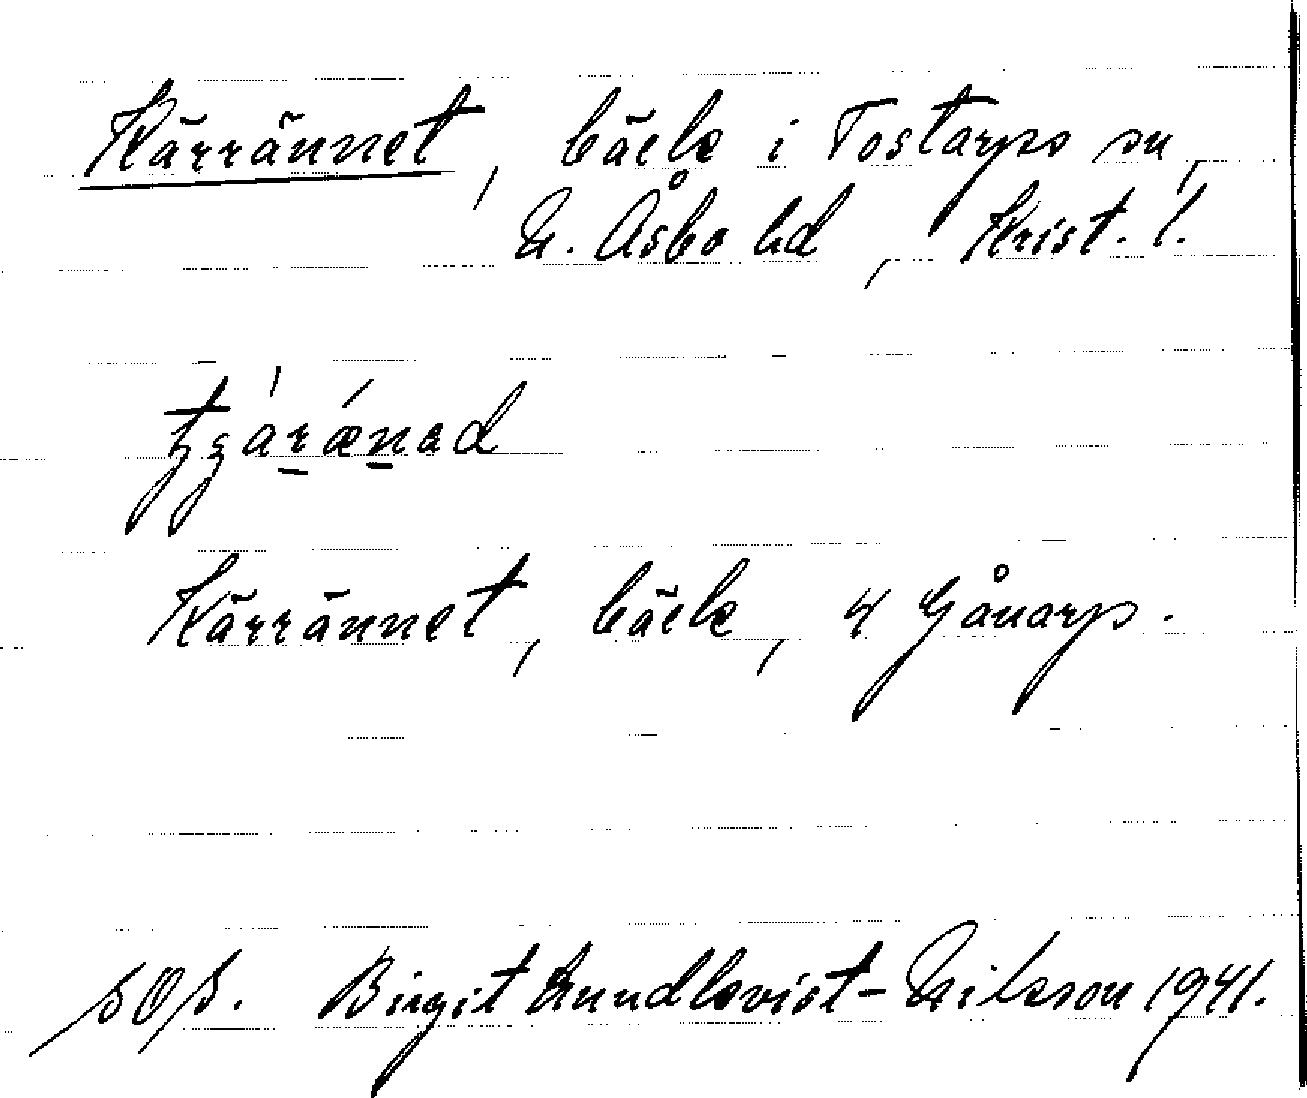 Kärrännet, bäck i Tostarps sn,
N. Åsbo hd, Krist. l.
Kärrännet, bäck, 4 Gånarp.
Birgit Lundkvist-Nilsson 1941.